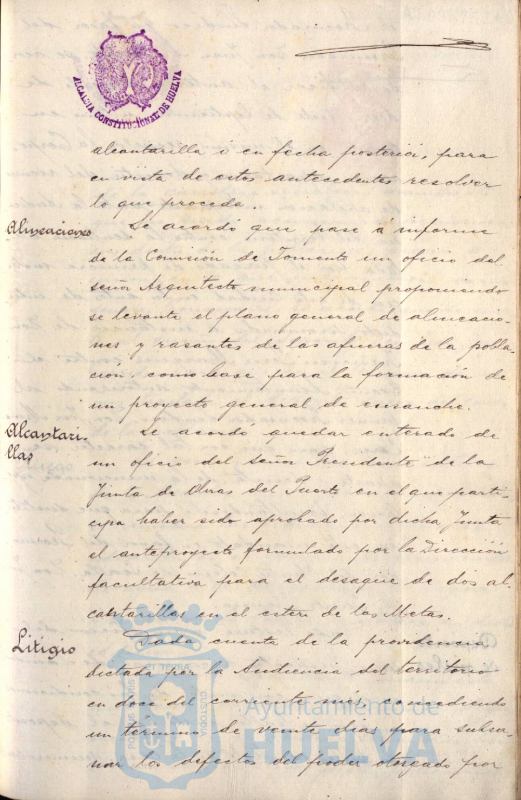 ALCALDIA CONSTITUCIONAL DE HUELVA
alcantarilla o en fecha posterior, para
en vista de estos antecedentes resolver
lo que proceda.
Alineaciones
Se acordó que pase á informe
de la Comisión de Fomento un oficio del
señor Arquitecto municipal proponiendo
se levante el plano general de alineacio-
nes y rasantes de las afueras de la pobla-
ción, como base para la formación de
un proyecto general de ensanche.
Alcantari-
llas
Se acordó quedar enterado de
un oficio del señor Presidente de la
Junta de Obras del Puerto en el que parti-
cipa haber sido aprobado por dicha Junta
el anteproyecto formulado por la Dirección
facultativa para el desagüe de dos al-
cantarillas en el estero de las Metas.
Litigio
Dada cuenta de la providencia
dictada por la Audiencia del territorio
en doce del corriente mes, concediendo
un término de veinte dias para subsa-
nar los defectos del poder otorgado por
Ayuntamiento de
HUELVA